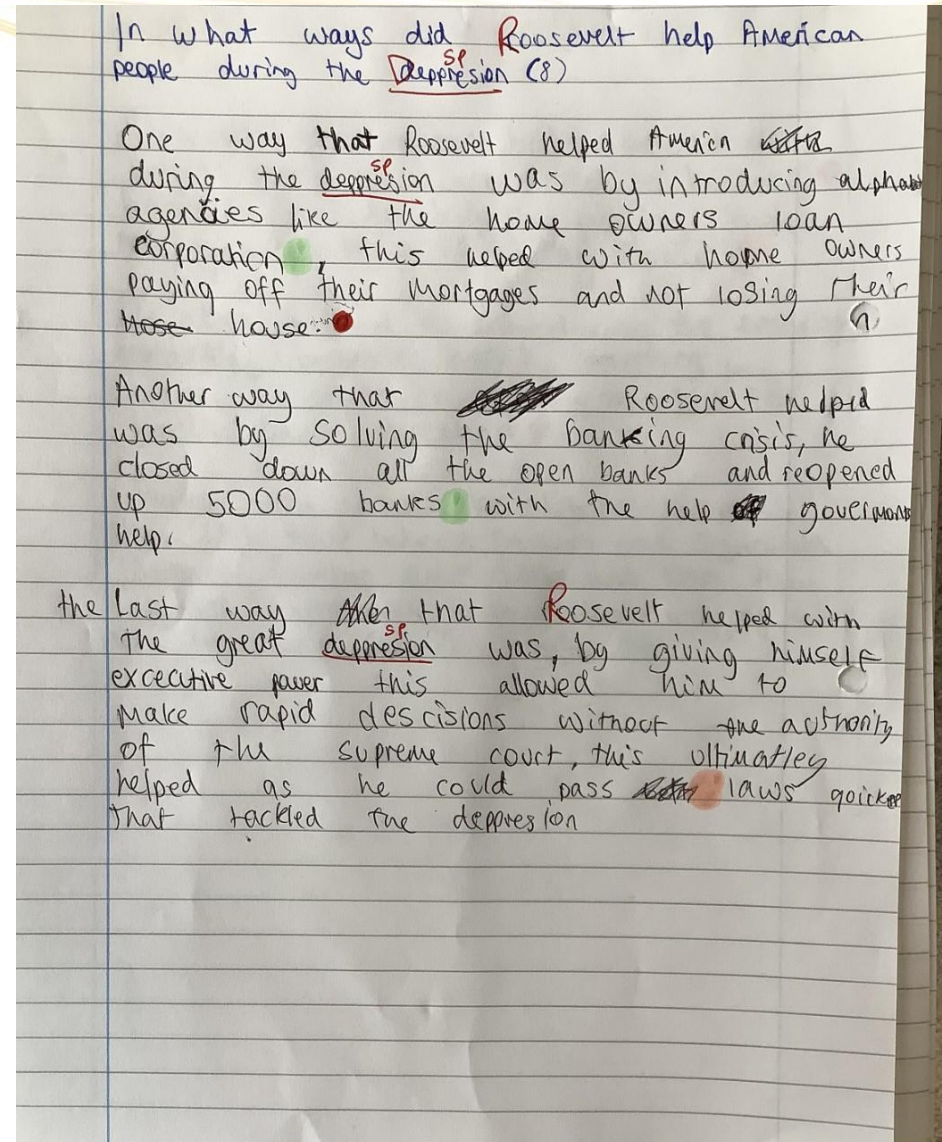 In what ways did Roosevelt help American
sp
people during the Deppresion (8)
One way that Roosevelt helped America
sp
during the deppresion was by introducing alphabet
agencies like the home owners loan
corporation, this helped with home owners
paying off their mortgages and not losing their
Hose house.
Another way that Roosevelt helped
was by solving the banking crisis, he
closed down all the open banks and reopened
up 5000 banks with the help of
help.
the Last way that Roosevelt helped with
sp
the great deppresion was, by giving himself
excecutive power this allowed him to
make rapid descisions without the authority
of the supreme court, this ultimatley
helped as he could pass laws
that tackled the deppresion